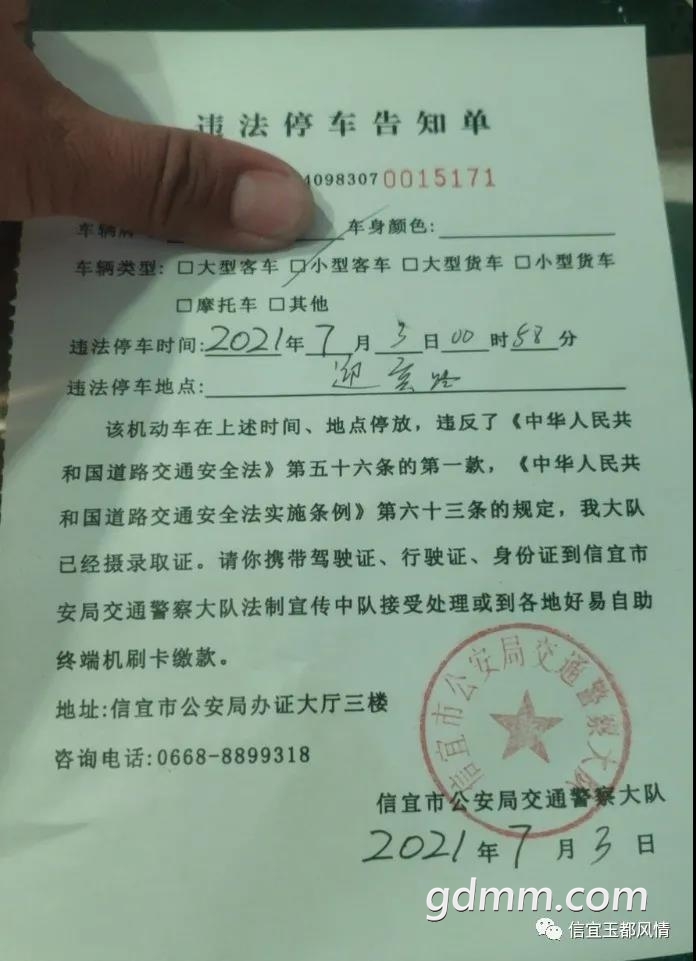 违法停车告知单
4098307 0015171
车辆 车身颜色:
车辆类型: □大型客车 □小型客车 □大型货车 □小型货车
□摩托车 □其他
违法停车时间:2021年7月3日00时58分
违法停车地点: 迎 路
该机动车在上述时间、地点停放，违反了《中华人民共
和国道路交通安全法》第五十六条的第一款，《中华人民共
和国道路交通安全法实施条例》第六十三条的规定，我大队
已经摄录取证。请你携带驾驶证、行驶证、身份证到信宜市
安局交通警察大队法制宣传中队接受处理或到各地好易自助
终端机刷卡缴款。
地址:信宜市公安局办证大厅三楼
咨询电话:0668-8899318
信宜市公安局交通警察大队
信宜市公安局交通警察大队
2021年7月3日
gdmm.com
信宜玉都风情